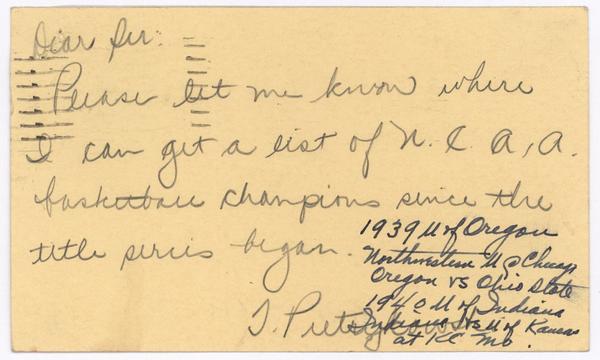 Dear Sir:
Please let me know where
I can get a list of N. C. A. A.
basketball champions since the
title series began.
1939 U of Oregon
Northwestern U @ Chicago
Oregon vs Ohio State
1940 U of Indiana
Indiana vs U of Kansas
at KC Mo.